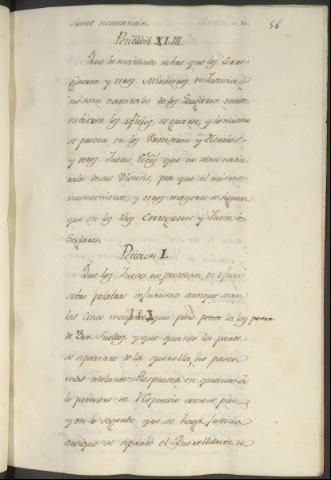 56
siones necesarias.
Peticion XLIII.
Que lo mandado sobre que los Corre-
gidores y otros Ministros de Justicia
no sean naturales de los Lugares donde
tubieren los oficios se guarde, y lo mismo
se provea en los Provisores y Vicarios
y otros Jueces que no sean natu-
rales de sus Diocesis, por que el mismo
inconveniente, y otros mayores se siguen
que en los Corregidores y Jueces
Seglares.
Peticion L.
Que los Jueces no procedan de oficio
sobre palabras injuriosas aunque sean
las cinco que pone pena la ley pena
de y que quando las partes
se apartaren de la querella, no pasen
mas adelante = Respuesta en quanto a
lo primero se responde como se pide
y en lo segundo que se haga Justicia
aunque se aparte el Querellante, se